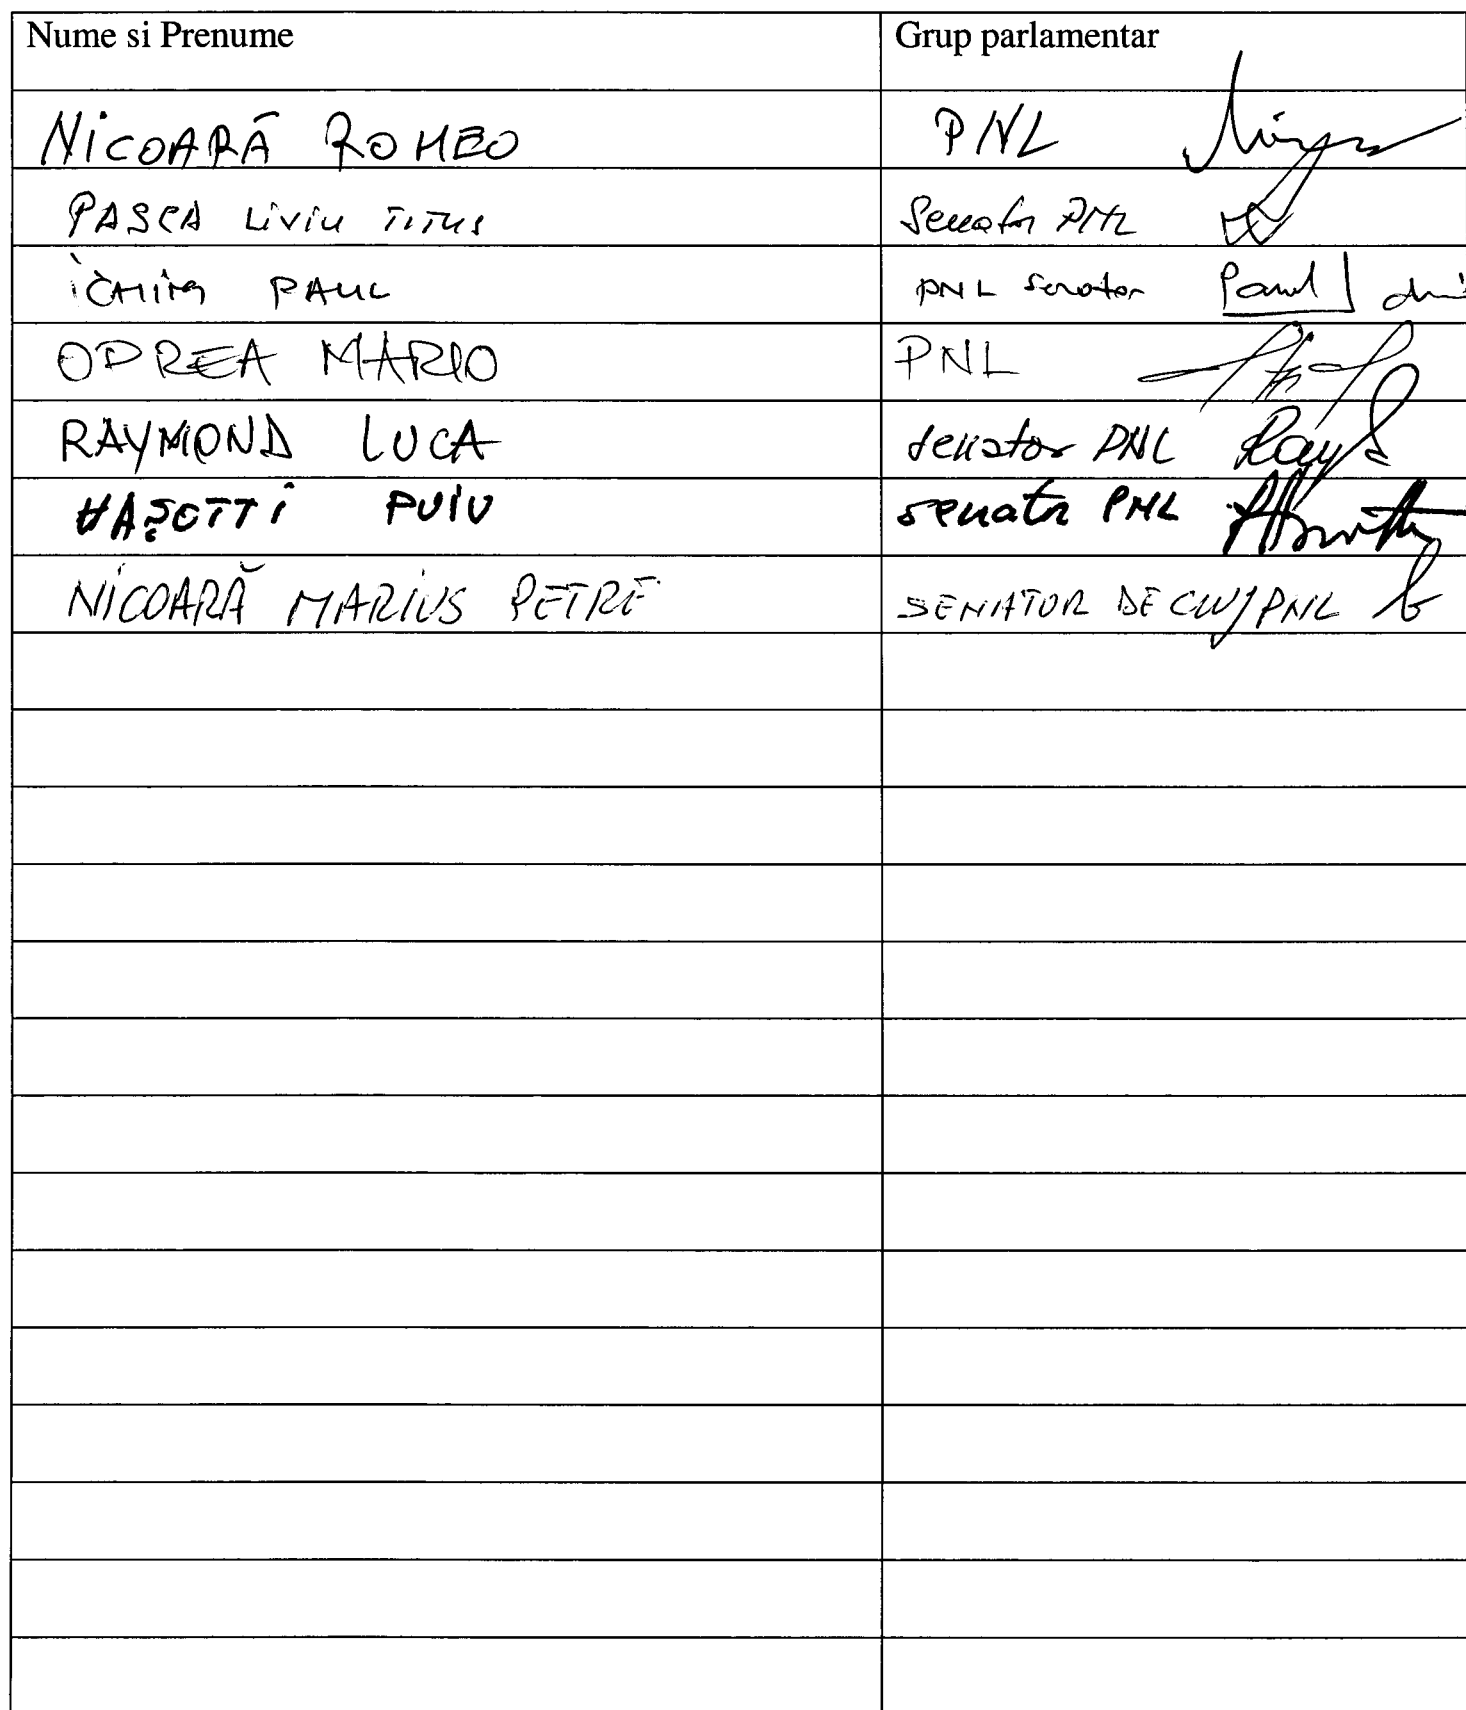 Nume si Prenume Grup parlamentar
NICOARĂ ROMEO PNL
PASCA LIVIU TITUS Senator PNL
ICHIM PAUL PNL Senator Paul
OPREA MARIO PNL
RAYMOND LUCA senator PNL Ray
HAȘOTTI PUIU senator PNL
NICOARĂ MARIUS PETRE SENATOR DE CLUJ PNL